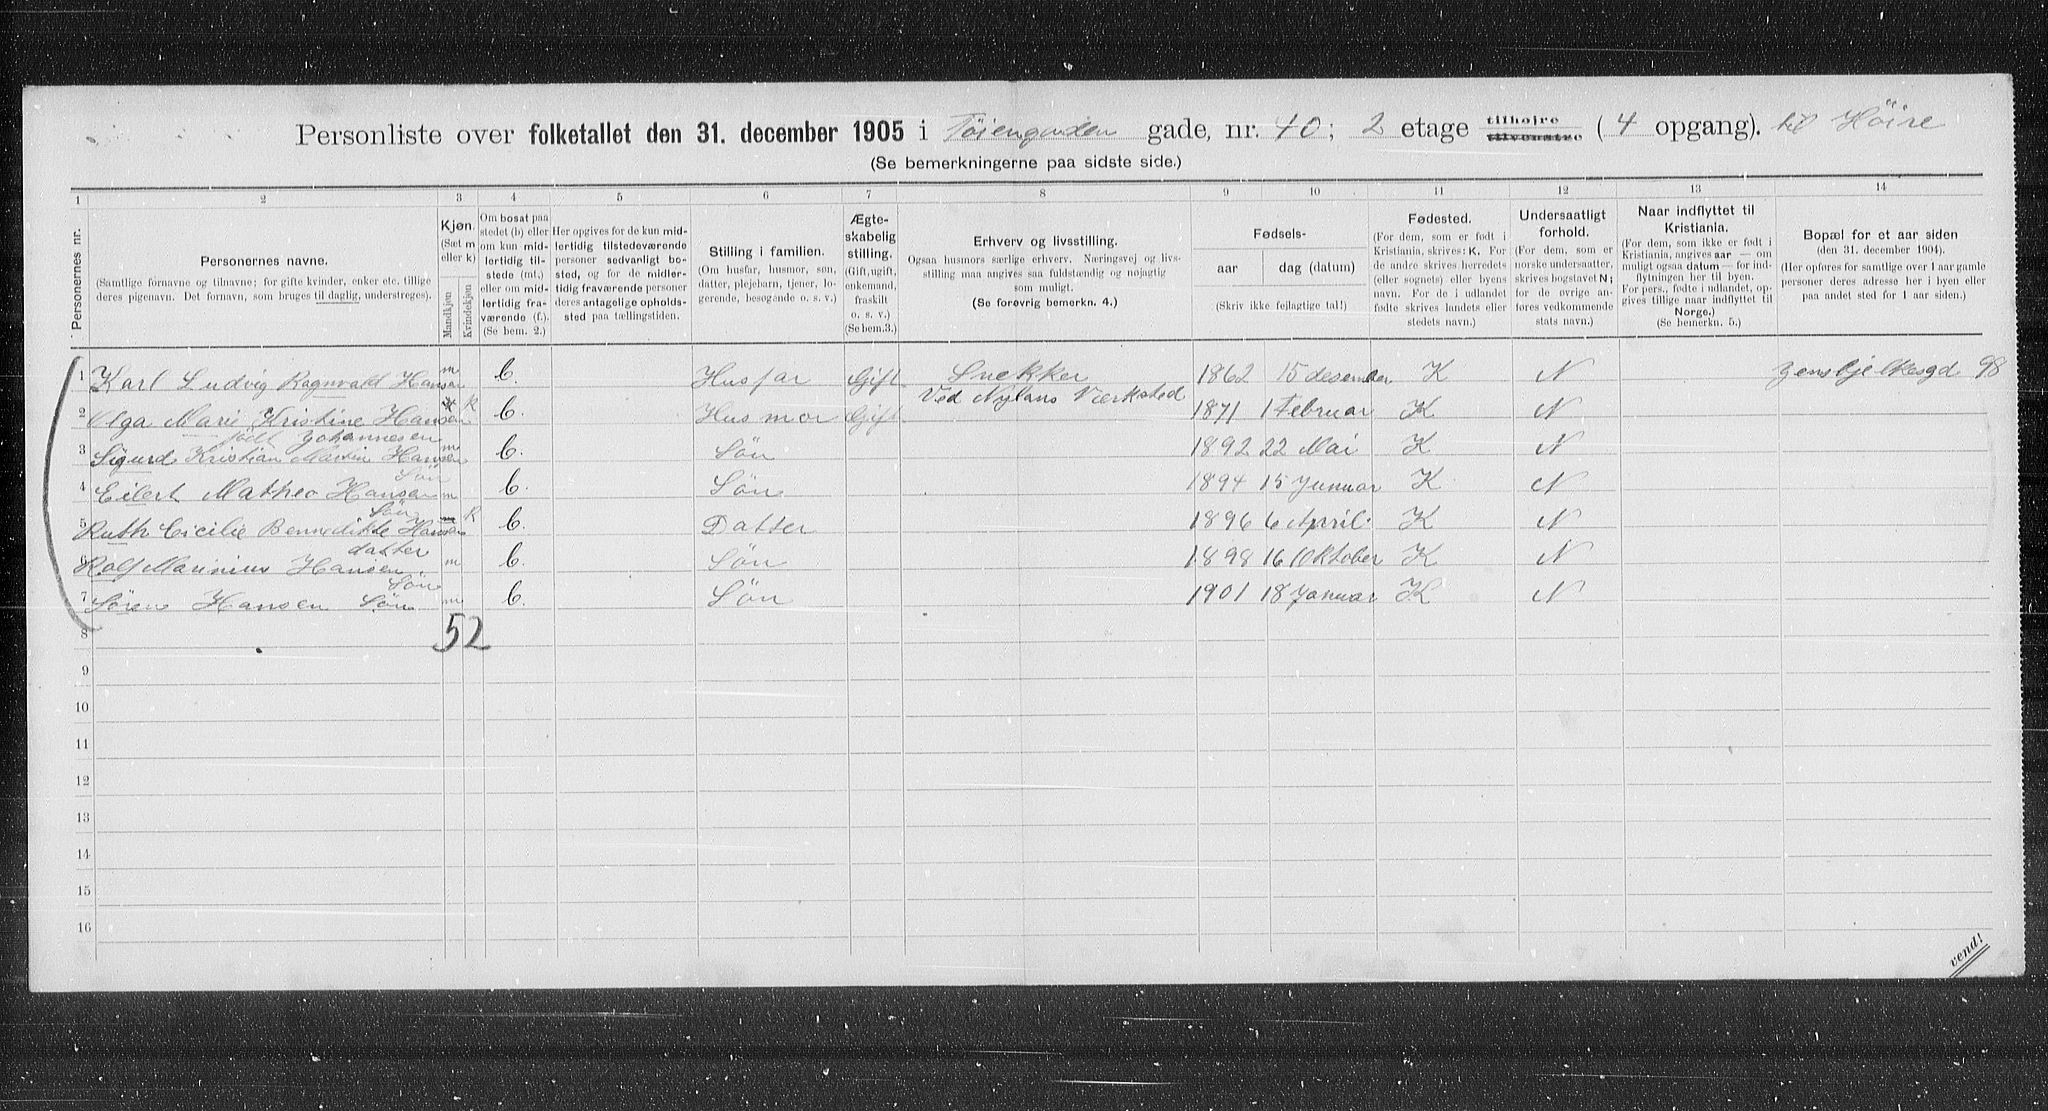 Personliste over folketallet den 31. december 1905 i Töiengaden gade, nr. 40; 2 etage tilhøjre tilvenstre (4 opgang). til Höire
(Se bemerkningerne paa sidste side.)
1 2 3 4 5 6 7 8 9 10 11 12 13 14
Personernes nr.
Personernes navne.
(Samtlige fornavne og tilnavne; for gifte kvinder, enker etc. tillige
deres pigenavn. Det fornavn, som bruges til daglig, understreges).
Kjøn.
(Sæt m
eller k)
Mandkjøn
Kvindekjøn
Om bosat paa
stedet (b) eller
om kun mid-
lertidig til-
stede (mt.)
eller om mid-
lertidig fra-
værende (f.).
(Se bem. 2.)
Her opgives for de kun mid-
lertidig tilstedeværende
personer sedvanligt bo-
sted, og for de midler-
tidig fraværende personer
deres antagelige opholds-
sted paa tællingstiden.
Stilling i familien.
(Om husfar, husmor, søn,
datter, plejebarn, tjener, lo-
gerende, besøgande o. s. v.)
Ægte-
skabelig
stilling.
(Gift, ugift,
enkemand,
fraskilt
o. s. v.)
(Se bem.3.)
Erhverv og livsstilling.
Ogsaa husmors særlige erhverv. Næringsvej og livs-
stilling maa angives saa fuldstændig og nøjagtig
som muligt.
(Se forøvrig bemerkn. 4.)
Fødsels-
aar
dag (datum)
(Skriv ikke fejlagtige tal!)
Fødested.
(For dem, som er født i
Kristiania, skrives: K. For
de andre skrives herredets
(eller sognets) eller byens
navn. For de i udlandet
fødte skrives landets eller
stedets navn.)
Undersaatligt
forhold.
(For dem, som er
norske undersaatter,
skrives bogstavet N;
for de øvrige an-
føres vedkommende
stats navn.)
Naar indflyttet til
Kristiania.
(For dem, som ikke er født i
Kristiania, angives aar — om
muligt ogsaa datum — for ind-
flytningen her til byen.
For pers. fødte i udlandet, op-
gives tillige naar indflyttet til
Norge.)
(Se bemerkn. 5.)
Bopæl for et aar siden
(den 31. december 1904).
(Her opføres for samtlige over 1 aar gamle
personer deres adresse her i byen eller
paa andet sted for 1 aar siden.)
1 Karl Ludvig Ragnvald Hansen m b. Husfar Gift Snekker 1862 15 desember K N Jensbjelkesgd 98
Ved Nylans Værksted
2 Olga Marie Kristine Hansen k b. Husmor Gift 1871 1 Februar K N
födt Johannesen
3 Sigurd Kristian Martin Hansen m b. Sön 1892 22 Mai K N
Sön
4 Eilert Matheo Hansen m b. Sön 1894 15 Januar K N
Sön
5 Ruth Cicilie Bennedikte Hansen k b. Datter 1896 6 April. K N
datter
6 Rolf Marinius Hansen m b. Sön 1898 16 Oktober K N
Sön
7 Sören Hansen Sön m b. Sön 1901 18 Januar K N
8
52
9
10
11
12
13
14
15
16
vend!